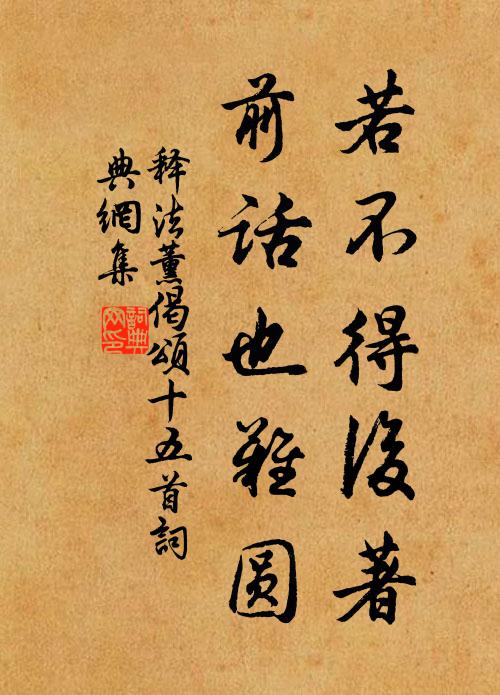 若不得後著
前话也难圆
释法薰偈頌十五首詞
典網集
詞典網印